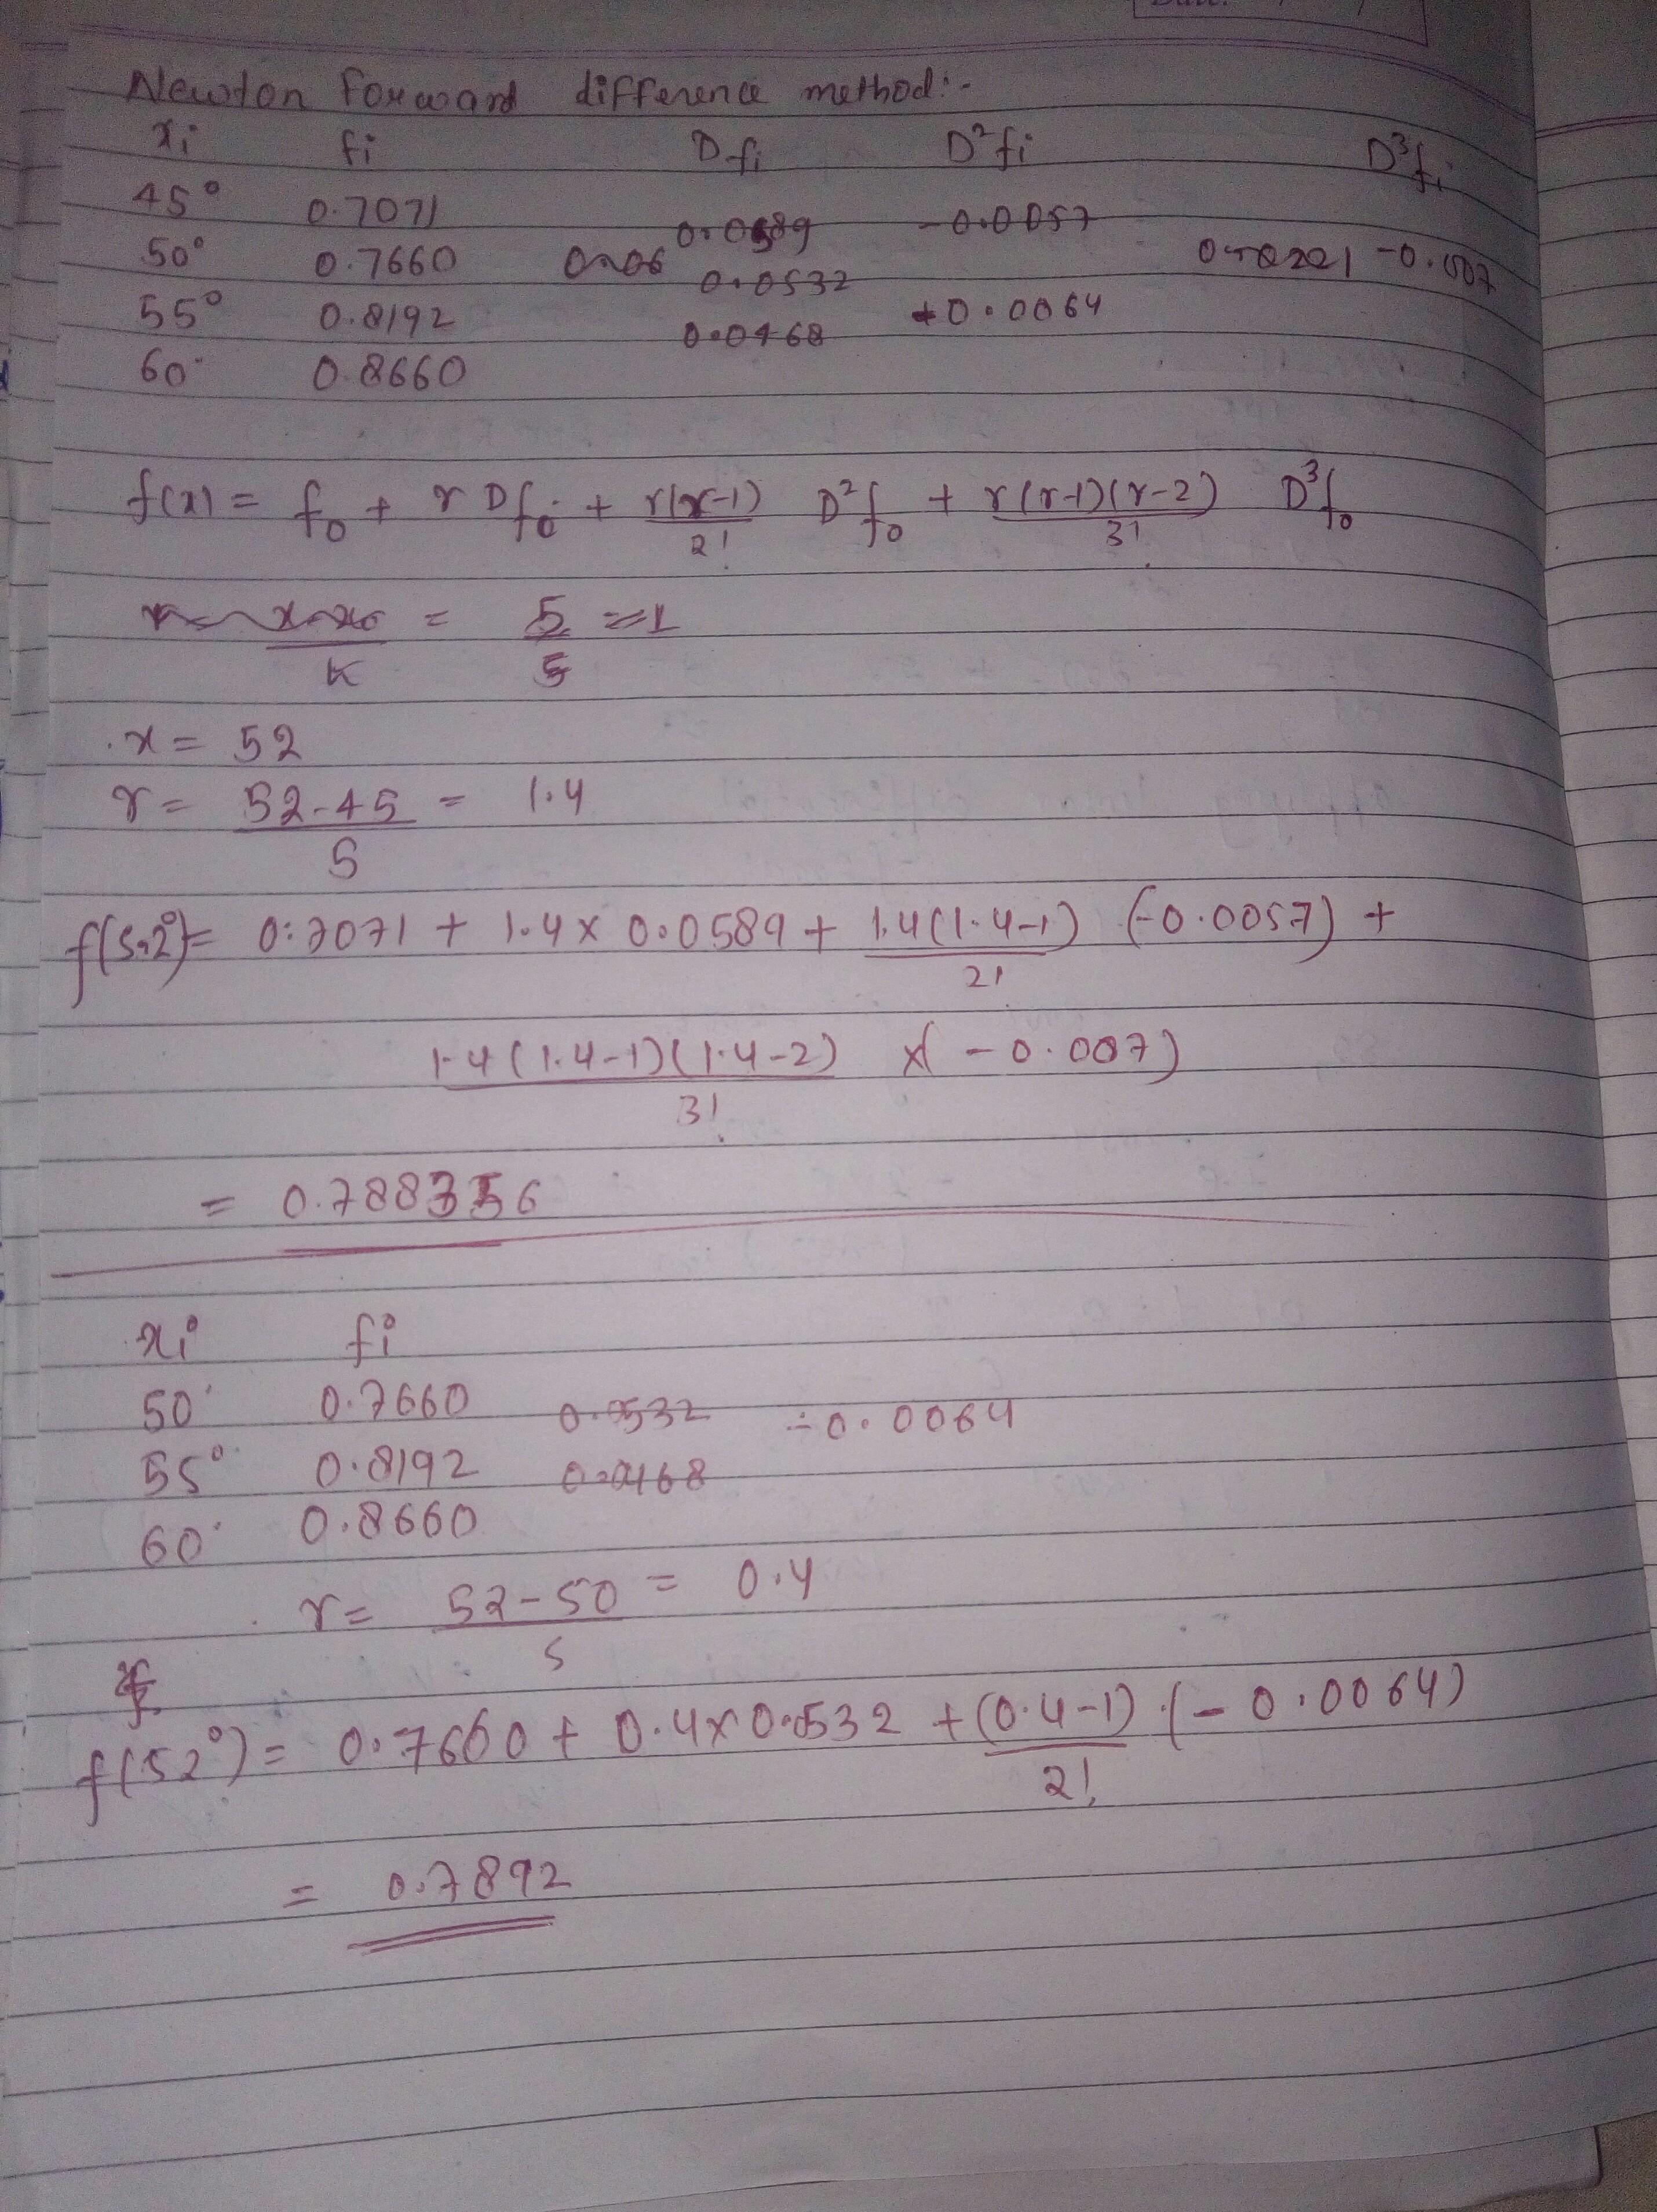 Date:
Newton Forward difference method:-
xi fi Dfi D²fi D³fi
45° 0.7071
0.0589 -0.0057
50° 0.7660
0.0532 -0.007
55° 0.8192 0.0064
0.0468
60° 0.8660
f(x) = f0 + r Df0 + r(r-1)/2! D²f0 + r(r-1)(r-2)/3! D³f0
r = x-x0/k = 5/5 = 1
x = 52
r = 52-45/5 = 1.4
f(52°) = 0.7071 + 1.4 x 0.0589 + 1.4(1.4-1)/2! (-0.0057) +
1.4(1.4-1)(1.4-2)/3! x(-0.007)
= 0.788356
xi fi
50° 0.7660 0.0532 -0.0064
55° 0.8192 0.0468
60° 0.8660
r = 52-50/5 = 0.4
f(52°) = 0.7660 + 0.4x0.0532 + (0.4-1)/2! . (-0.0064)
= 0.7892